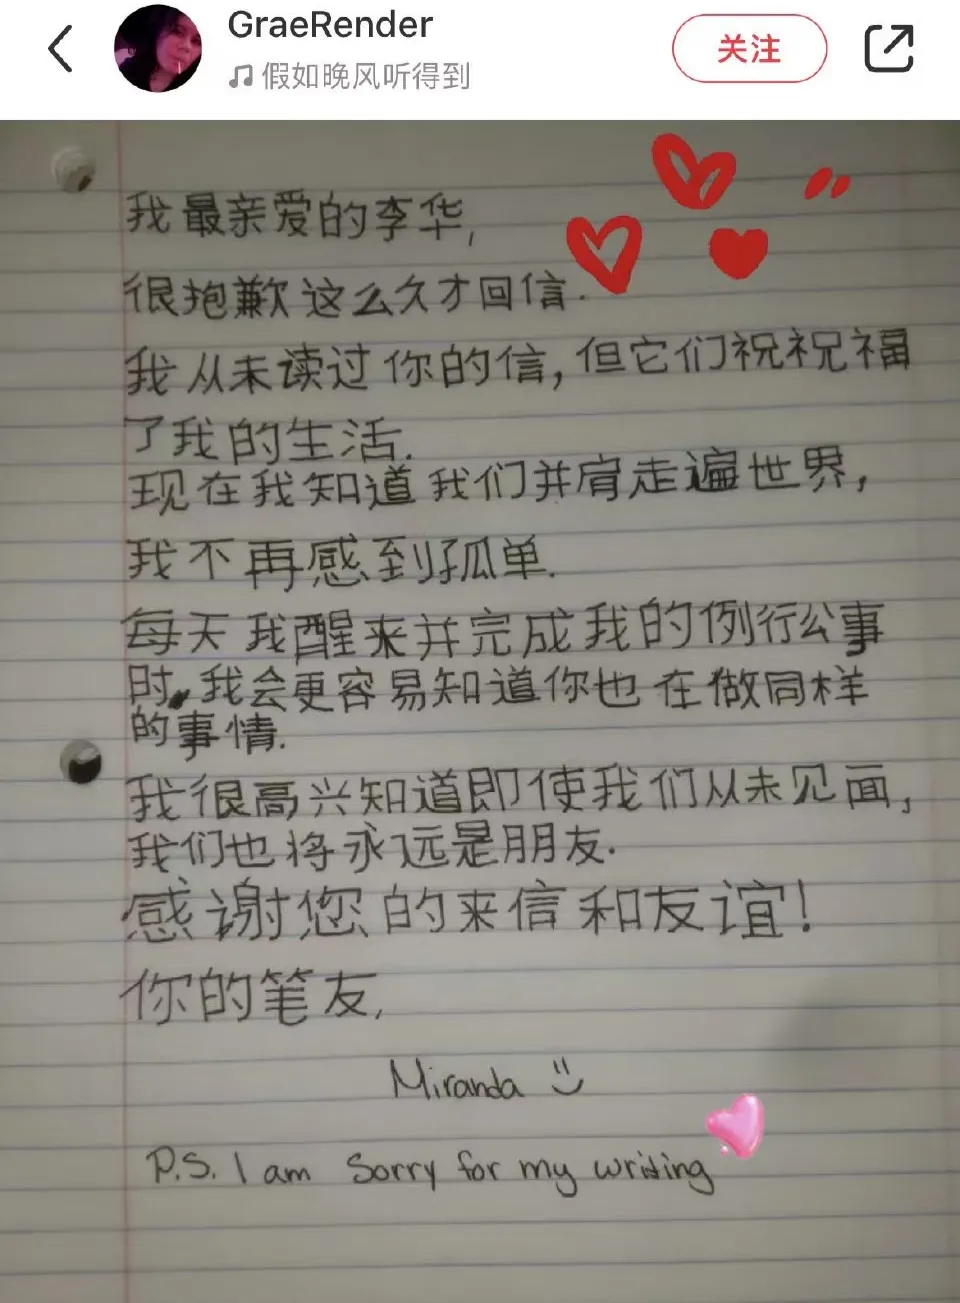 GraeRender
假如晚风听得到
关注
我最亲爱的李华,
很抱歉这么久才回信.
我从未读过你的信,但它们祝祝福
了我的生活.
现在我知道我们并肩走遍世界,
我不再感到孤单.
每天我醒来并完成我的例行公事
时,我会更容易知道你也在做同样
的事情.
我很高兴知道即使我们从未见面,
我们也将永远是朋友.
感谢您的来信和友谊!
你的笔友,
Miranda
P.S. I am Sorry for my writing